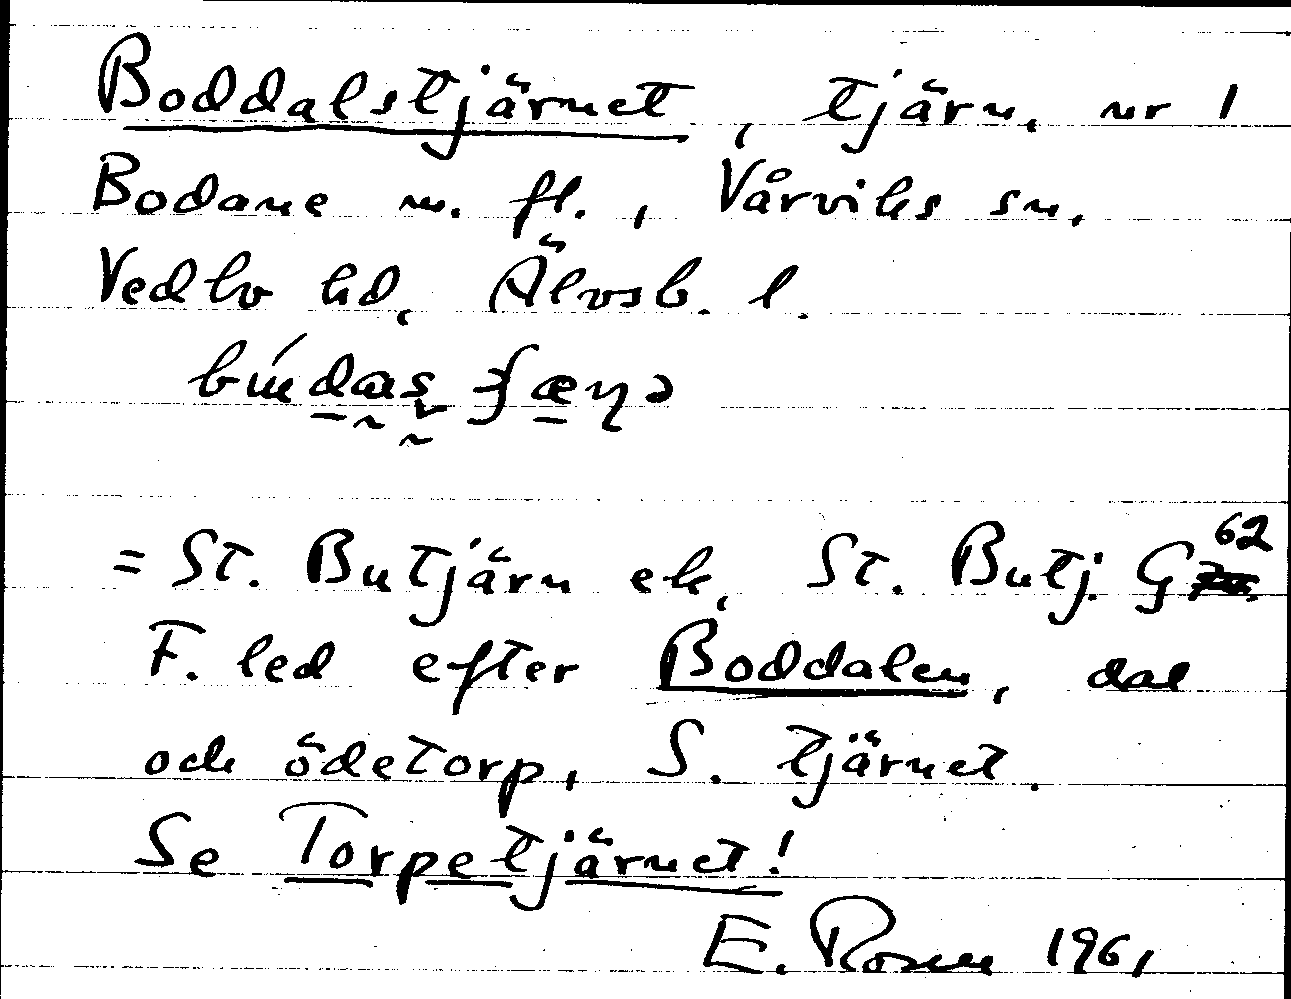 Boddalstjärnet, tjärn, nr 1
Bodane m. fl., Vårviks sn,
Vedbo hd, Älvsb. l.
= St. Butjärn ek, St. Butj. G 62
F. led efter Boddalen, dal
och ödetorp, S. tjärnet.
Se Torpetjärnet!
E. Rosen 1961